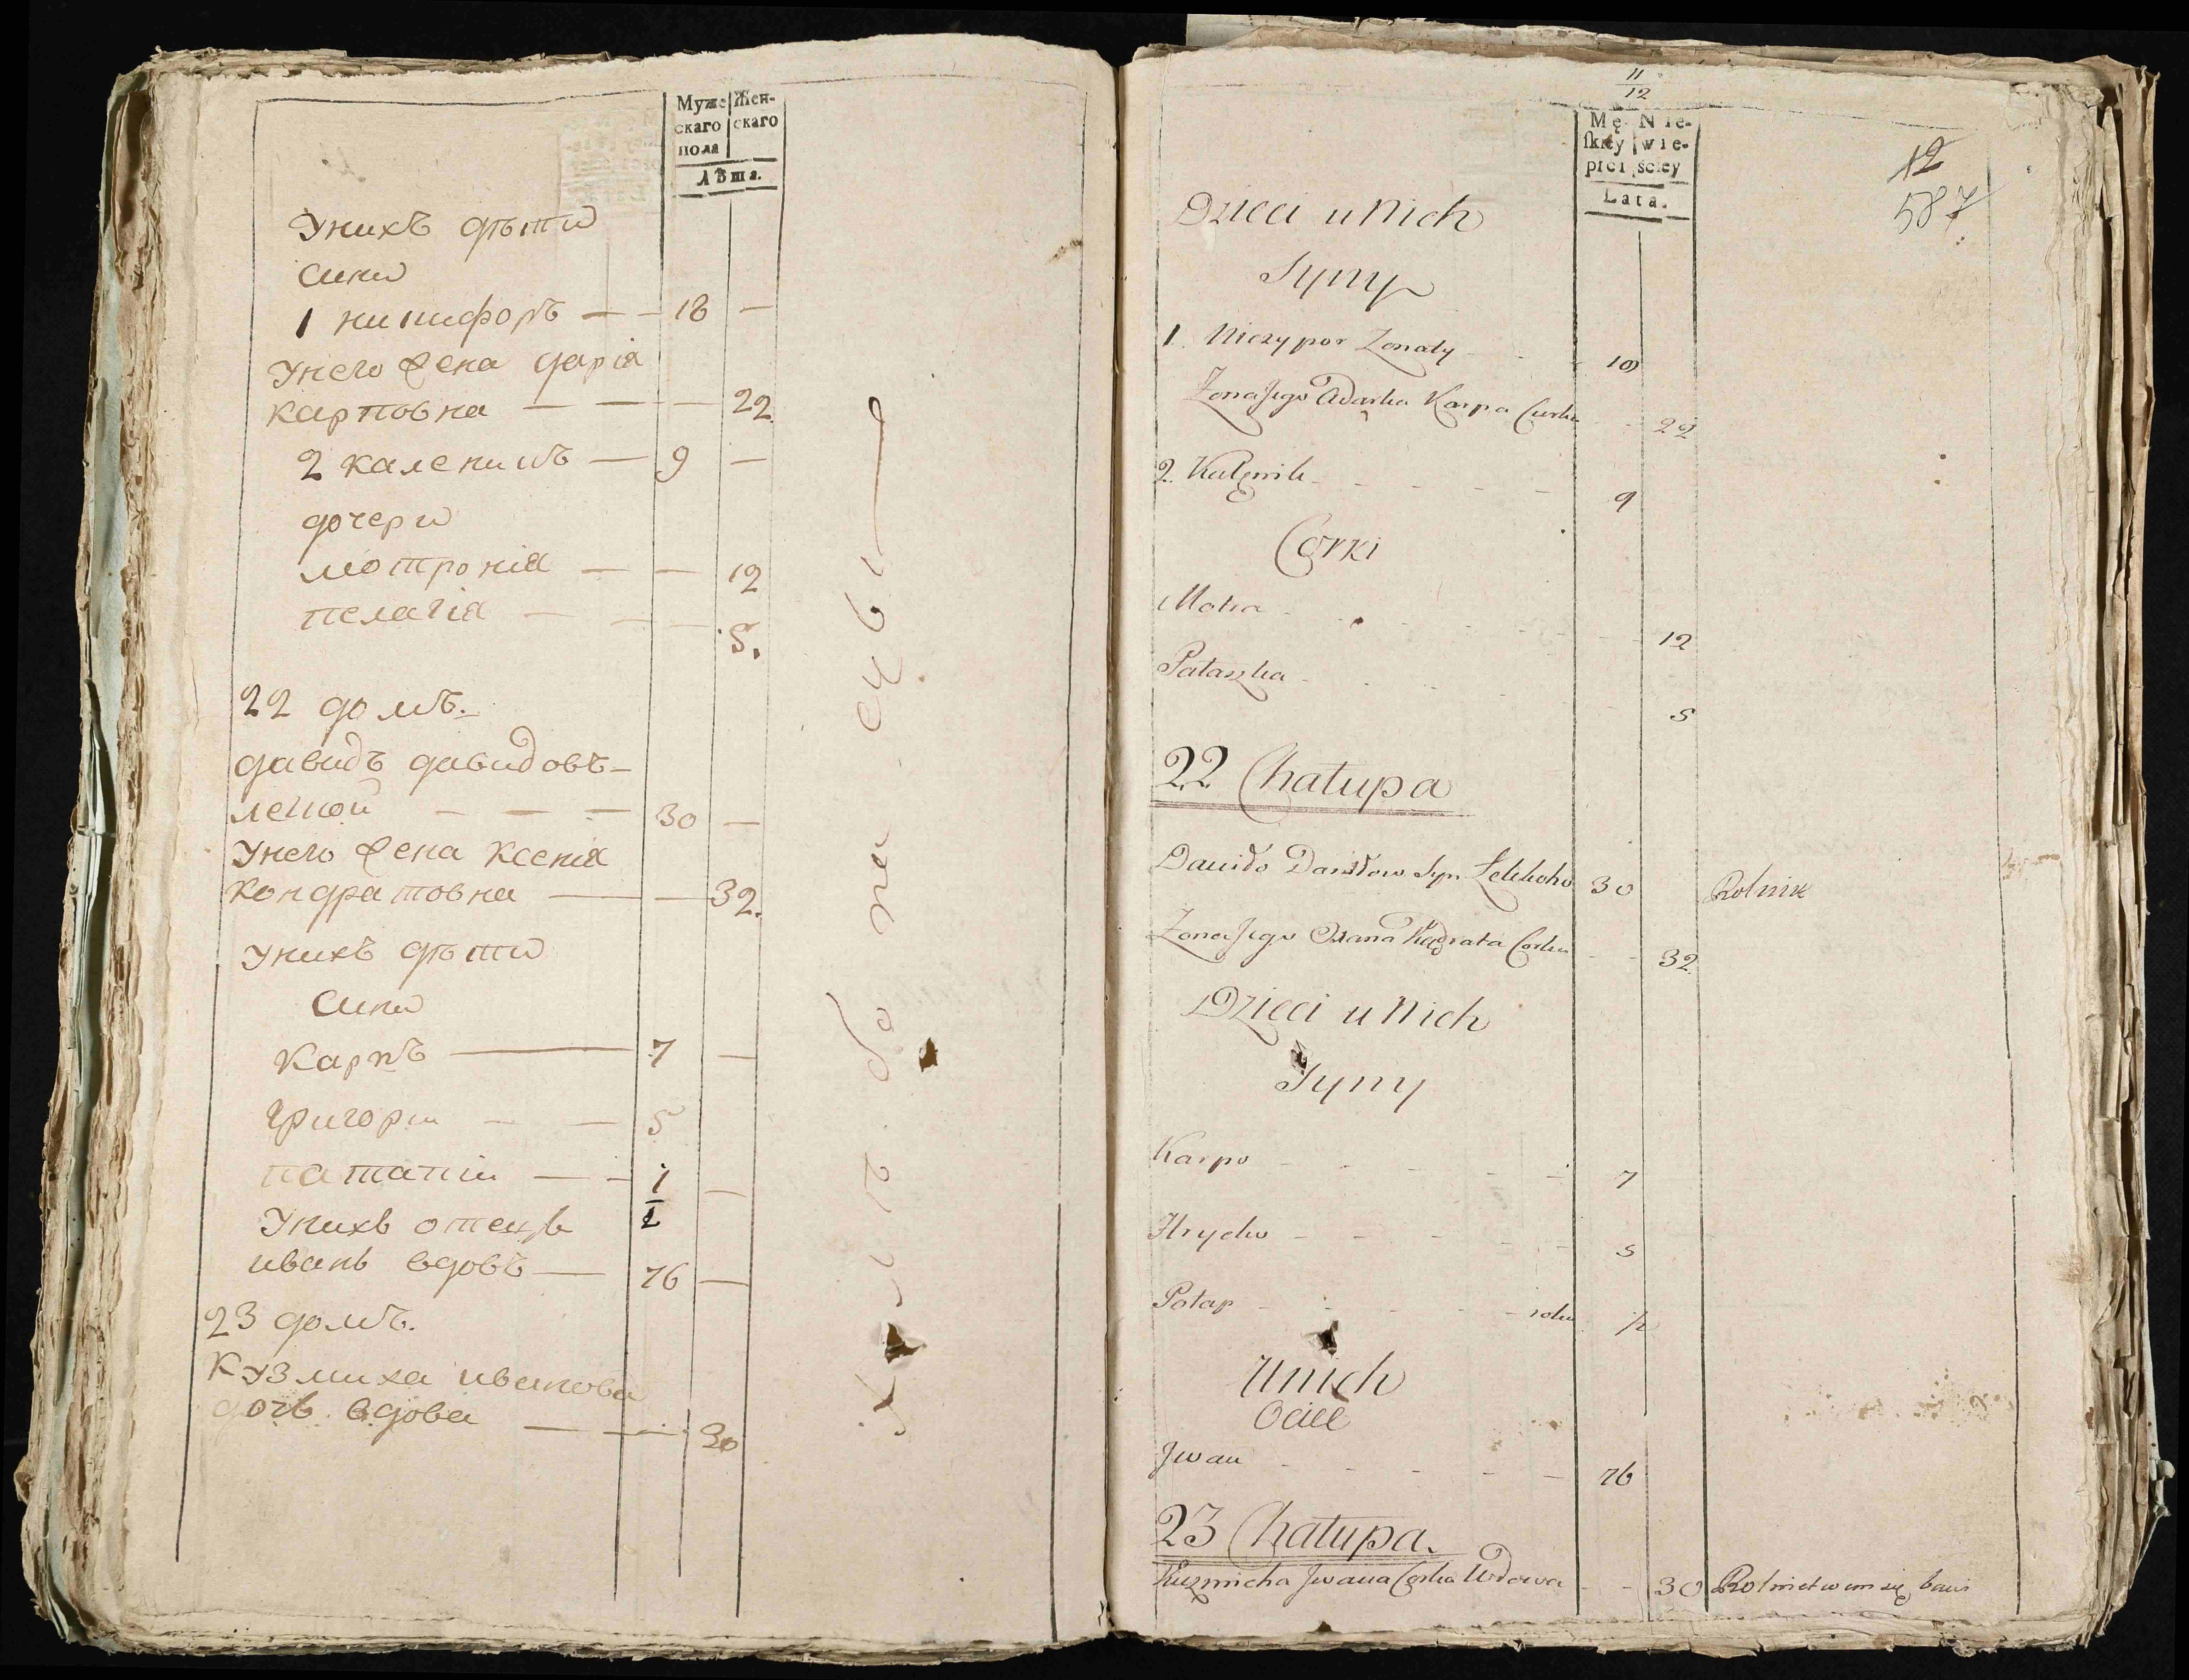 Муже Жен-
скаго скаго
пола
Лѣта.
Унихъ дѣти
Сини
1 никифоръ — — 18 —
Унего Жена дарія
карповна — — — 22
2 каленикъ — 9 —
дочери
мотронія — — 12
пелагія — — — 5.
22 домъ.
давидъ давидовъ —
— — — 30 —
Унего Жена Ксенія
Кондратовна — — 32.
Унихъ дѣти
Сини
Карпъ — 7 —
Григорій — — 5
патапій — — 1/2 —
Унихъ отецъ
иванъ вдовъ — 76 —
23 домъ.
Кузмиха иванова
дочь вдова — — 30
11
12
Mę- Nie-
ſkiey wie-
płci ściey
Lata.
12
587
Dzieci u Nich
Syny
1. Niczypor Zonaty - - 18
Zona Jego Odarka Karpa Curka - 22
2. Kalenik - - - - - 9
Corki
Motra - - - - - 12
Pałaszka - - - - 5
22 Chałupa
Dawido Dawidow Syn 30 Rolnik
Zona Jego Oxana Kądrata Corka - - 32
Dzieci u Nich
Syny
Karpo - - - - - 7
Hryćko - - - - - 5
Potap - - - - - roku 1/2
U nich
Ociec
Jwan - - - - - 76
23 Chałupa.
Kuzmicha Jwana Corka Wdowa - - 30 Rolnictwem się bawi